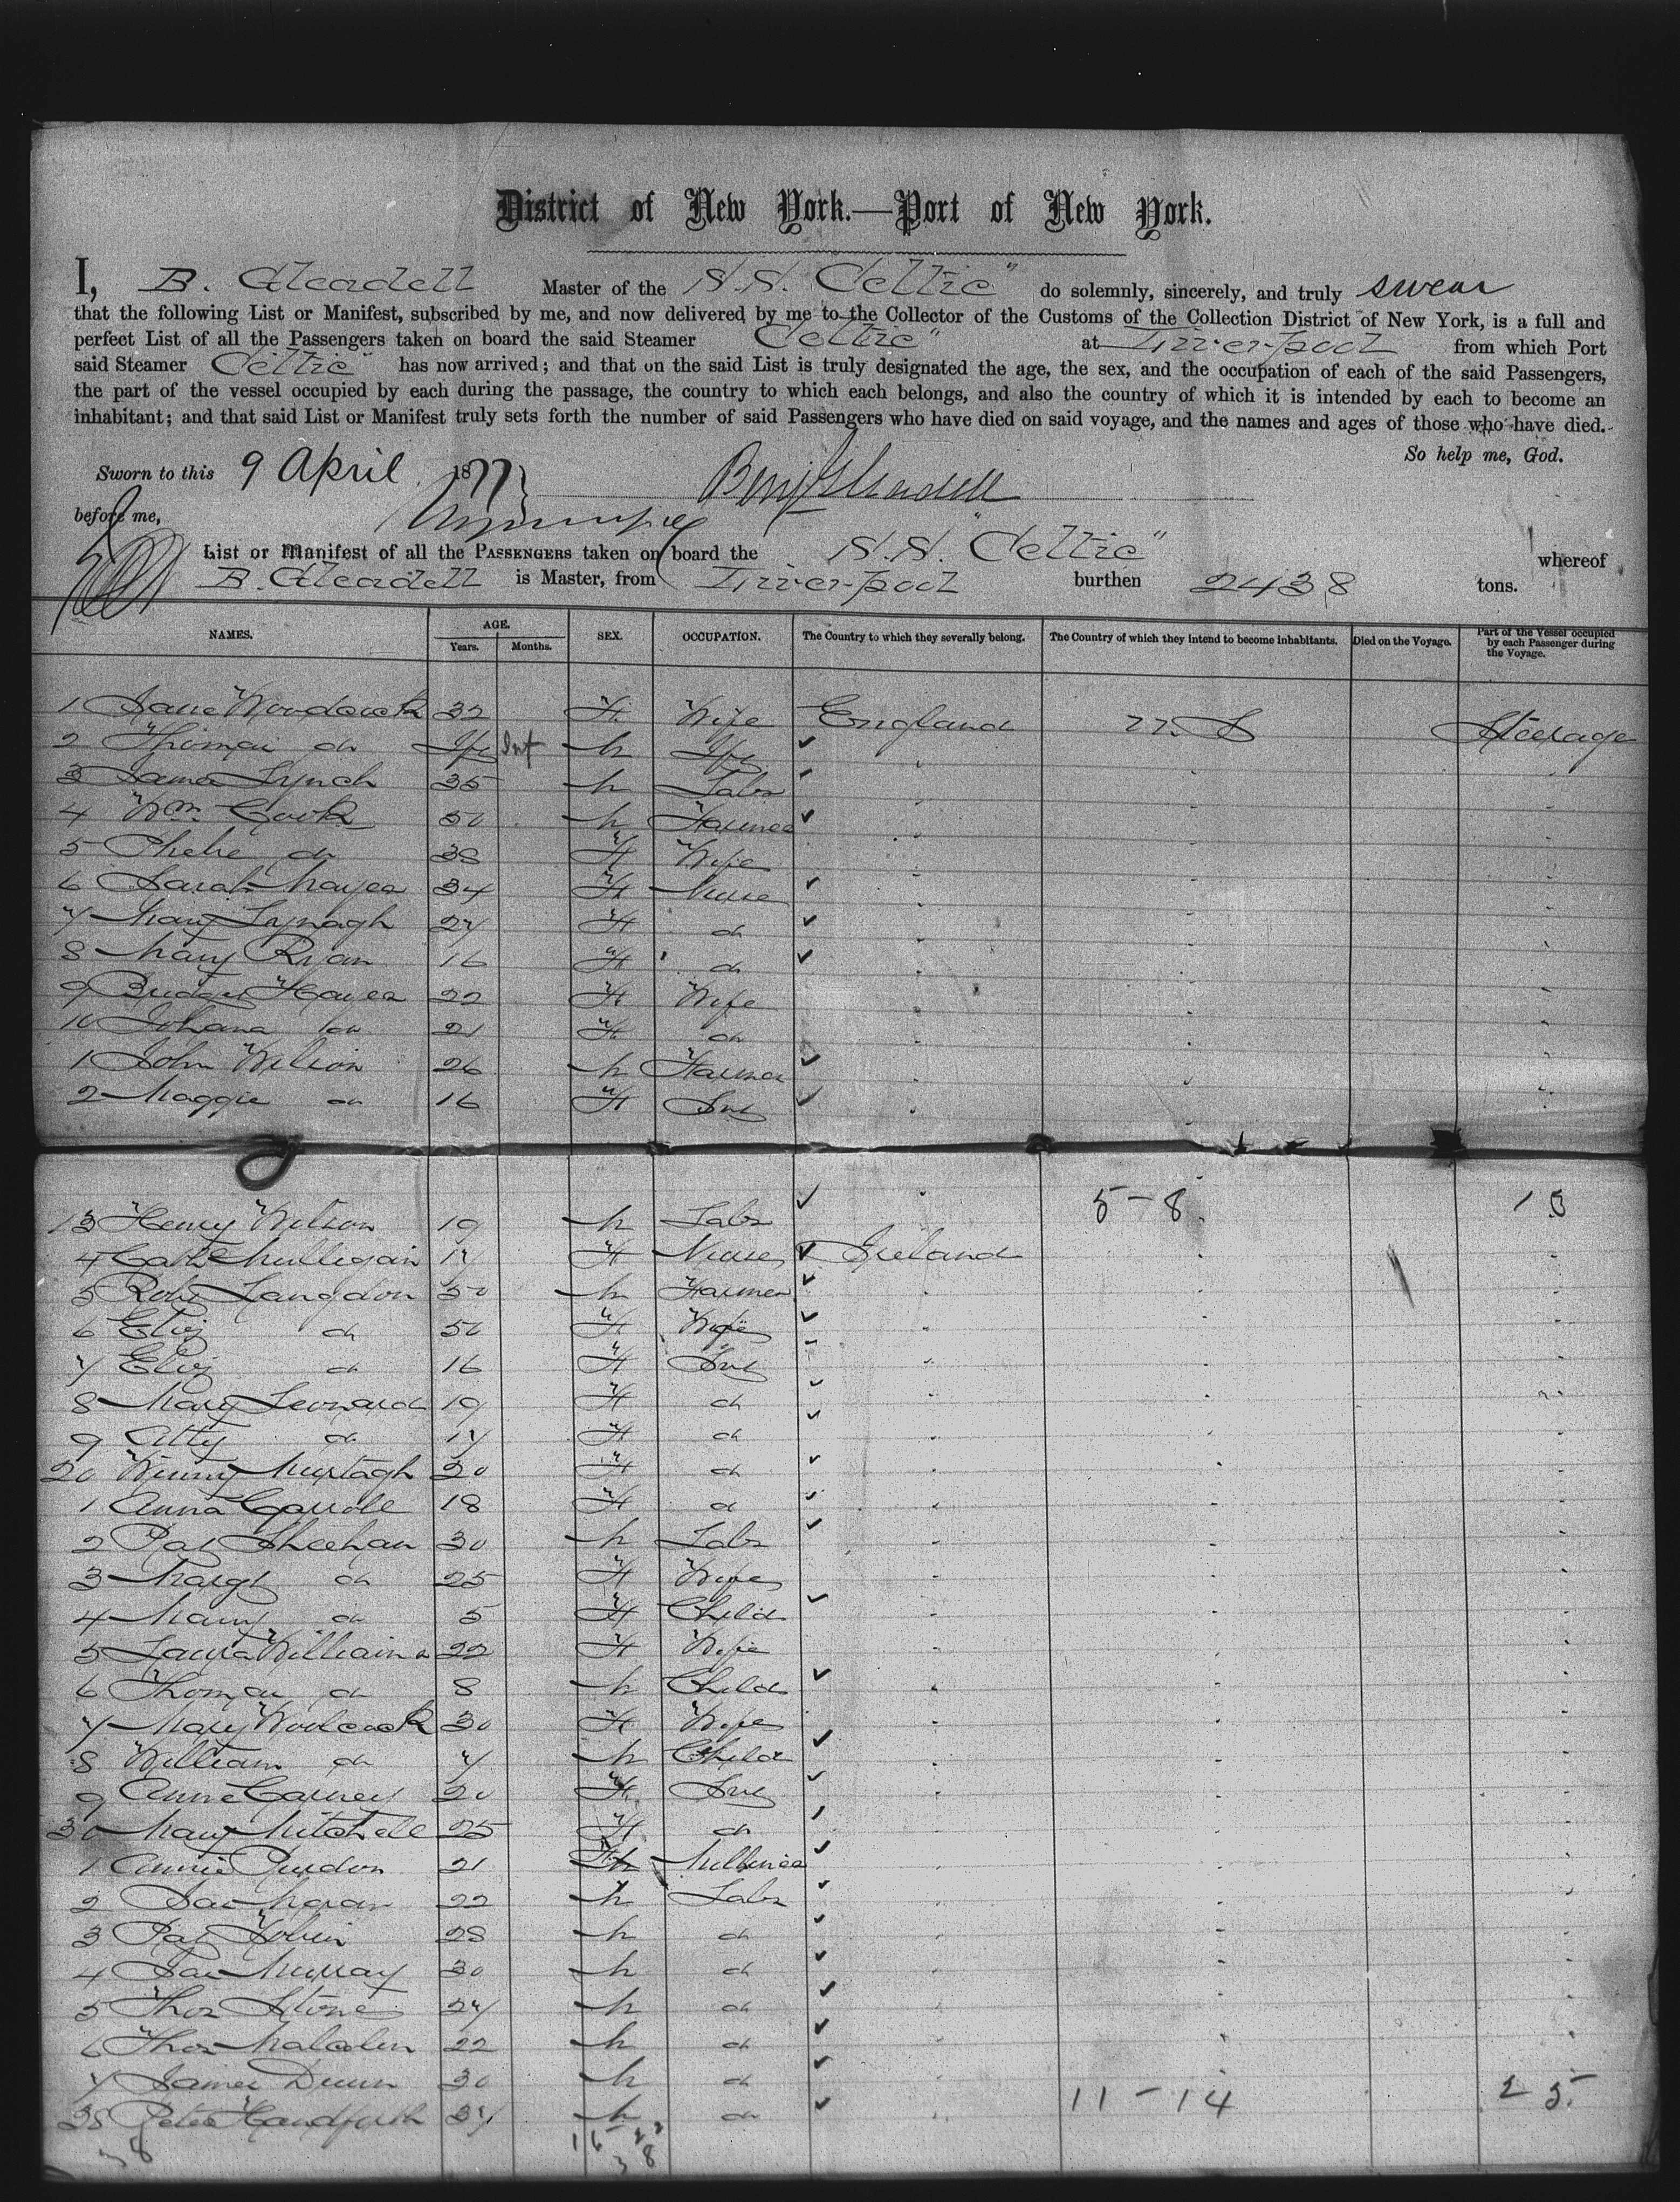 District of New York.—Port of New York.
I, B. Gleadell Master of the S.S. "Celtic" do solemnly, sincerely, and truly swear
that the following List or Manifest, subscribed by me, and now delivered by me to the Collector of the Customs of the Collection District of New York, is a full and
perfect List of all the Passengers taken on board the said Steamer Celtic" at Liverpool from which Port
said Steamer Celtic" has now arrived; and that on the said List is truly designated the age, the sex, and the occupation of each of the said Passengers,
the part of the vessel occupied by each during the passage, the country to which each belongs, and also the country of which it is intended by each to become an
inhabitant; and that said List or Manifest truly sets forth the number of said Passengers who have died on said voyage, and the names and ages of those who have died.
So help me, God.
Sworn to this 9 April 1877 Benj Gleadell
before me,
List or Manifest of all the PASSENGERS taken on board the S.S. "Celtic" whereof
B. Gleadell is Master, from Liverpool burthen 2438 tons.
NAMES. AGE. SEX. OCCUPATION. The Country to which they severally belong. The Country of which they intend to become inhabitants. Died on the Voyage. Part of the Vessel occupied by each Passenger during the Voyage.
Years. Months.
1 Jane Woodcock 32 F Wife England U.S Steerage
2 Thomas do Inf Inf M Inf
3 James Lynch 35 M Labr
4 Wm. Cook 50 M Farmer
5 Phebe do 38 F Wife
6 Sarah Mayes 34 F Nurse
7 Mary Lynagh 27 F do
8 Mary Ryan 16 F do
9 Bridget Hayes 22 F Wife
10 Johana do 21 F do
1 John Wilson 26 M Farmer
2 Maggie do 16 F Svt
13 Henry Wilson 19 M Labr 5-8 13
4 Cath Mulligan 17 F Nurse Ireland
5 Robt Langdon 50 M Farmer
6 Eliz do 50 F Wife
7 Eliz do 16 F Svt
8 Mary Leonard 19 F do
9 Atty do 17 F do
20 Winny Murtagh 20 F do
1 Anna Carrole 18 F do
2 Pat Sheehan 30 M Labr
3 Margt do 25 F Wife
4 Mary do 5 F Child
5 Laura Williams 22 F Wife
6 Thomas do 8 M Child
7 Mary Woolcock 30 F Wife
8 William do 7 M Child
9 Anne Carney 20 F Svt
30 Mary Mitchell 25 F do
1 Annie Purdon 21 F Milliner
2 Jas Moran 22 M Labr
3 Pat Tobin 28 M do
4 Jas Murray 30 M do
5 Thos Stone 27 M do
6 Thos 22 M do
7 James Dunn 30 M do 11-14 25
38 Peter Handforth 37 M do
38 16 22
38